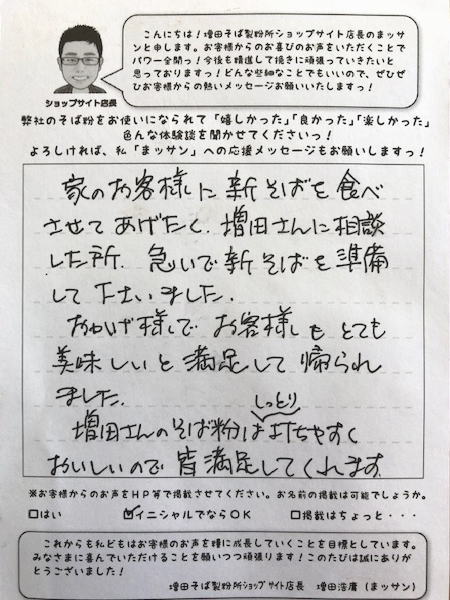 こんにちは！増田そば製粉所ショップサイト店長のまッサ
ンと申します。お客様からのお喜びのお声をいただくことで
パワー全開っ！今後も精進して挽きに頑張っていきたいと
思っておりますっ！どんな些細なことでもいいので、ぜひぜ
ひお客様からの熱いメッセージお願いいたしますっ！
ショップサイト店長
弊社のそば粉をお使いになられて「嬉しかった」「良かった」「楽しかった」
色んな体験談を聞かせてくださいっ！
よろしければ、私「まッサン」への応援メッセージもお願いしますっ！
家のお客様に新そばを食べ
させてあげたく、増田さんに相談
した所、急いで新そばを準備
して下さいました。
おかげ様しで お客様しも とても
美味しいと満足して帰られ
ました。
しっとり
増田さんのそば粉は打ちやすく
おいしいので皆満足してくれます
※お客様からのお声をHP等で掲載させてください。お名前の掲載は可能でしょうか。
□はい ☑イニシャルでならOK □掲載はちょっと・・・
これからも私どもはお客様のお声を糧に成長していくことを目標としています。
みなさまに喜んでいただけることを願いつつ頑張ります！このたびは誠にありが
とうございました！
増田そば製粉所ショップサイト店長 増田浩庸（まッサン）